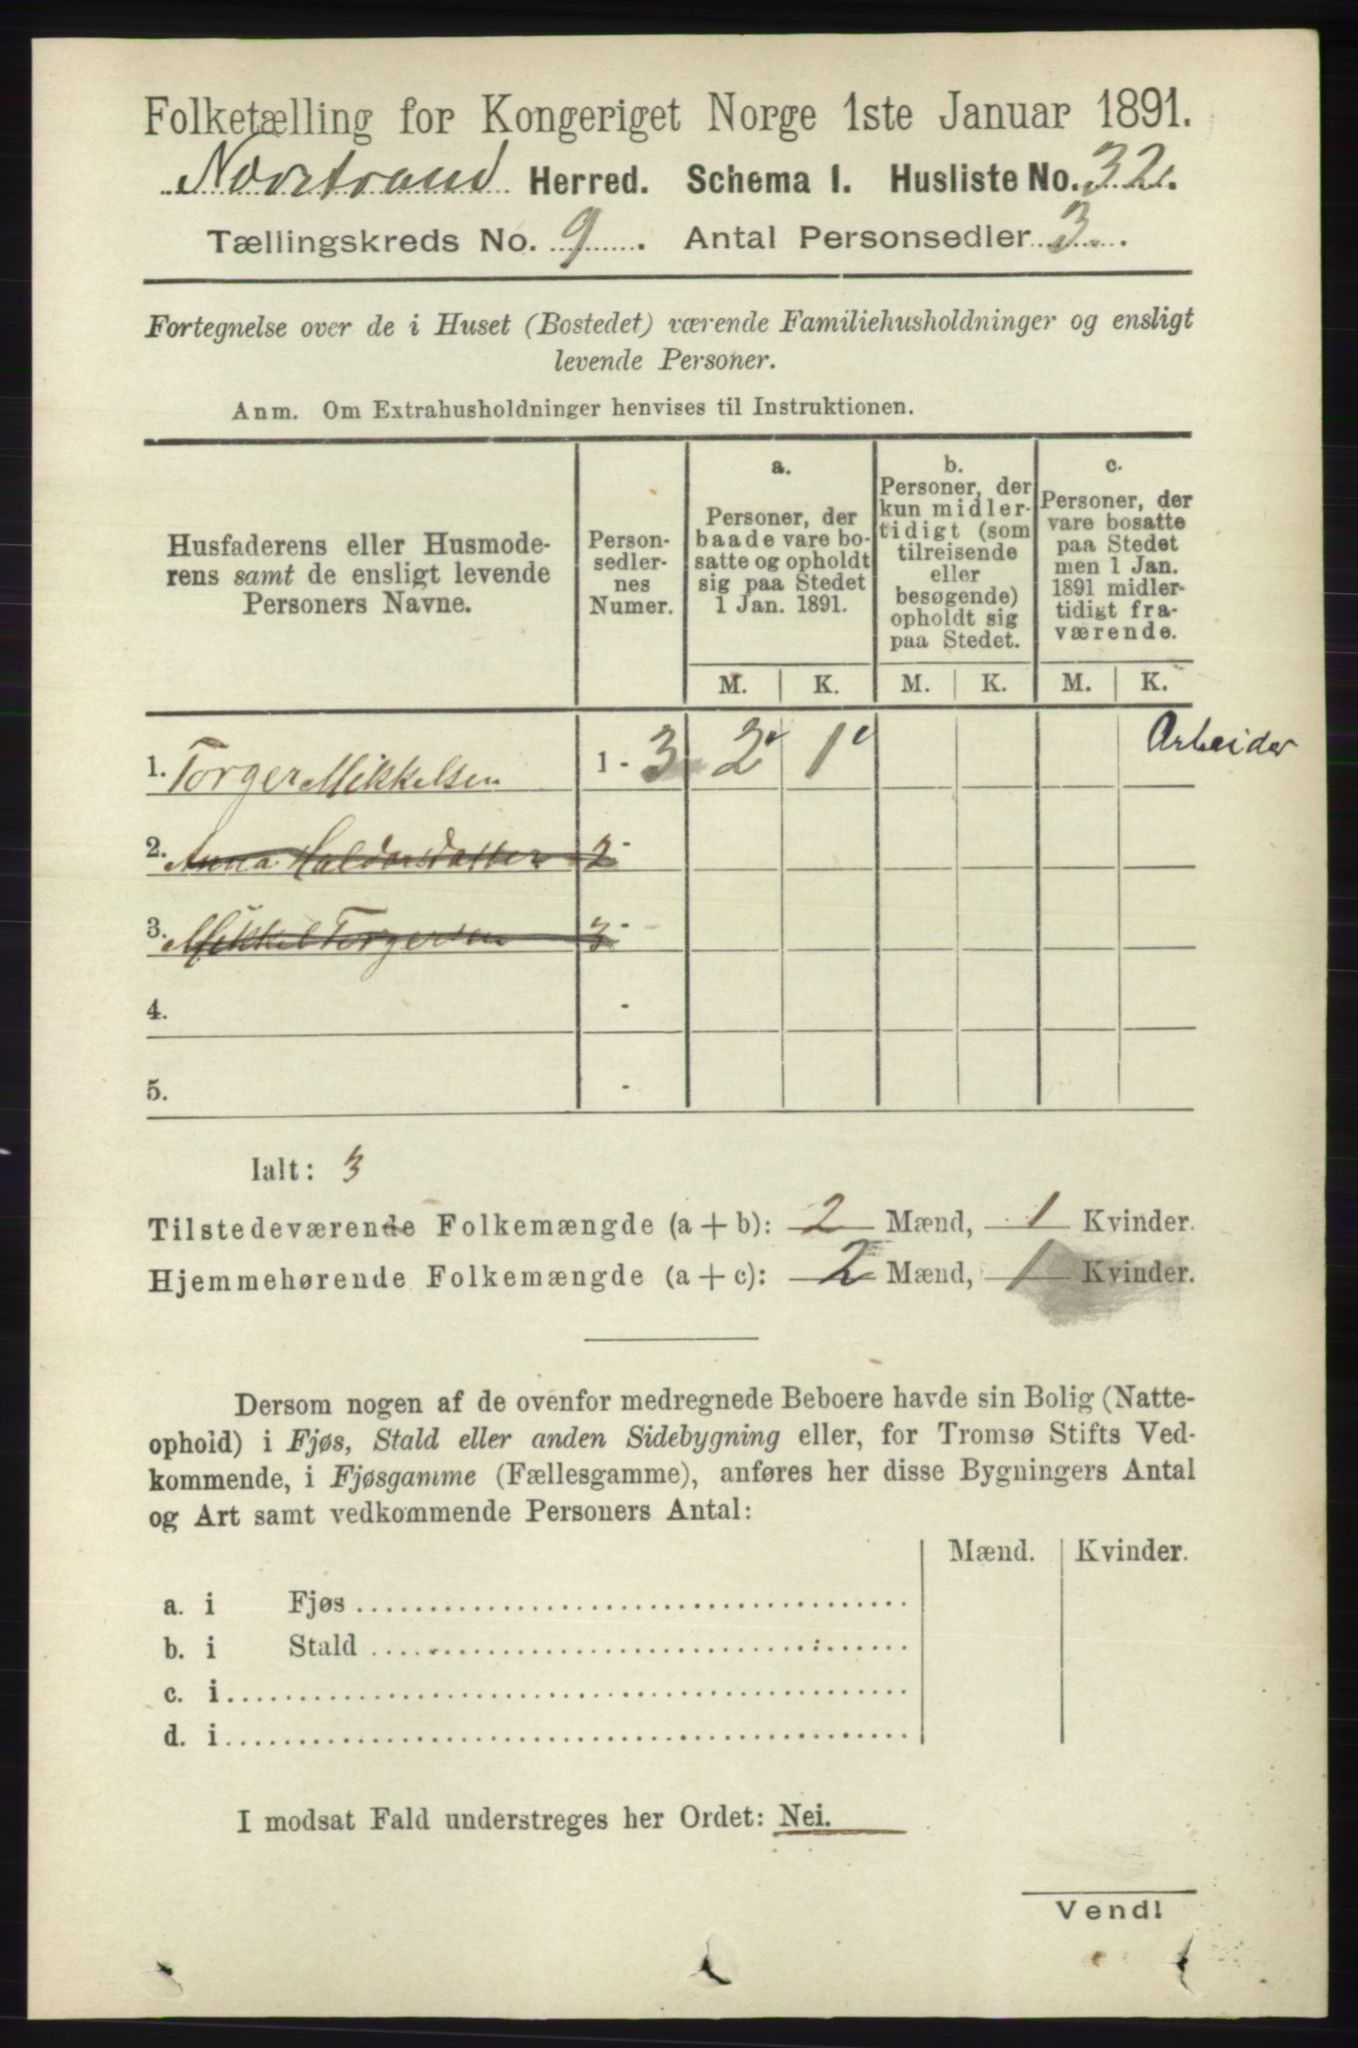 Folketælling for Kongeriget Norge 1ste Januar 1891.
Nærstrand Herred. Schema I. Husliste No. 32.
Tællingskreds No. 9. Antal Personsedler 3.
Fortegnelse over de i Huset (Bostedet) værende Familiehusholdninger og ensligt
levende Personer.
Anm. Om Extrahusholdninger henvises til Instruktionen.
Husfaderens eller Husmode-
rens samt de ensligt levende
Personers Navne.
Person-
sedler-
nes
Numer.
a.
Personer, der
baade vare bo-
satte og opholdt
sig paa Stedet
1 Jan. 1891.
b.
Personer, der
kun midler-
tidigt (som
tilreisende
eller
besøgende)
opholdt sig
paa Stedet.
c.
Personer, der
vare bosatte
paa Stedet
men 1 Jan.
1891 midler-
tidigt fra-
værende.
M. K. M. K. M. K.
1. Torger Mikkelsen 1 - 3 2 1 Arbeider
2. Anna Haldorsdatter 2 -
3. Mikkel Torgersen 3 -
4. -
5. -
Ialt: 3
Tilstedeværende Folkemængde (a + b): 2 Mænd, 1 Kvinder.
Hjemmehørende Folkemængde (a + c): 2 Mænd, 1 Kvinder.
Dersom nogen af de ovenfor medregnede Beboere havde sin Bolig (Natte-
ophold) i Fjøs, Stald eller anden Sidebygning eller, for Tromsø Stifts Ved-
kommende, i Fjøsgamme (Fællesgamme), anføres her disse Bygningers Antal
og Art samt vedkommende Personers Antal:
Mænd. Kvinder.
a. i Fjøs
b. i Stald
c. i
d. i
I modsat Fald understreges her Ordet: Nei.
Vend!